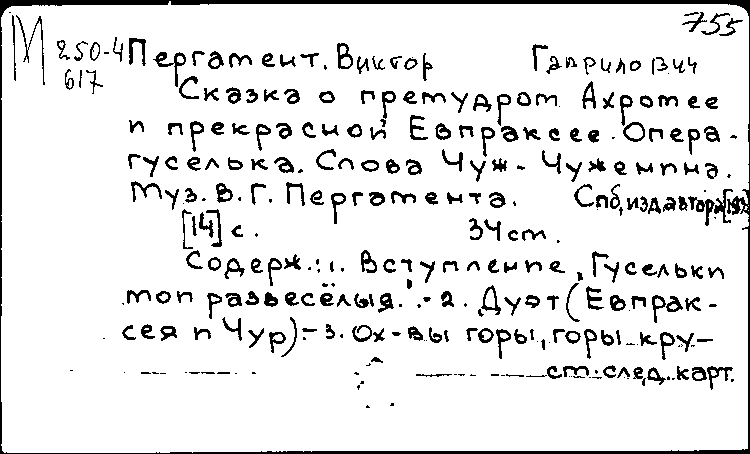 755
М 250-4
617
Пергамент. Виктор Гаврилович
Сказка о премудром Ахромее
и прекрасной Евпраксее. Опера-
гуселька. Слова Чуж-Чуженина.
Муз. В. Г. Пергамента. Спб, изд. автора
[14] с. 34 cm.
Содерж.: 1. Вступление, Гусельки
мои развесёлыя. - 2. Дуэт (Евпрак-
сея и Чур) - 3. Ох-вы горы, горы кру-
см. след. карт.